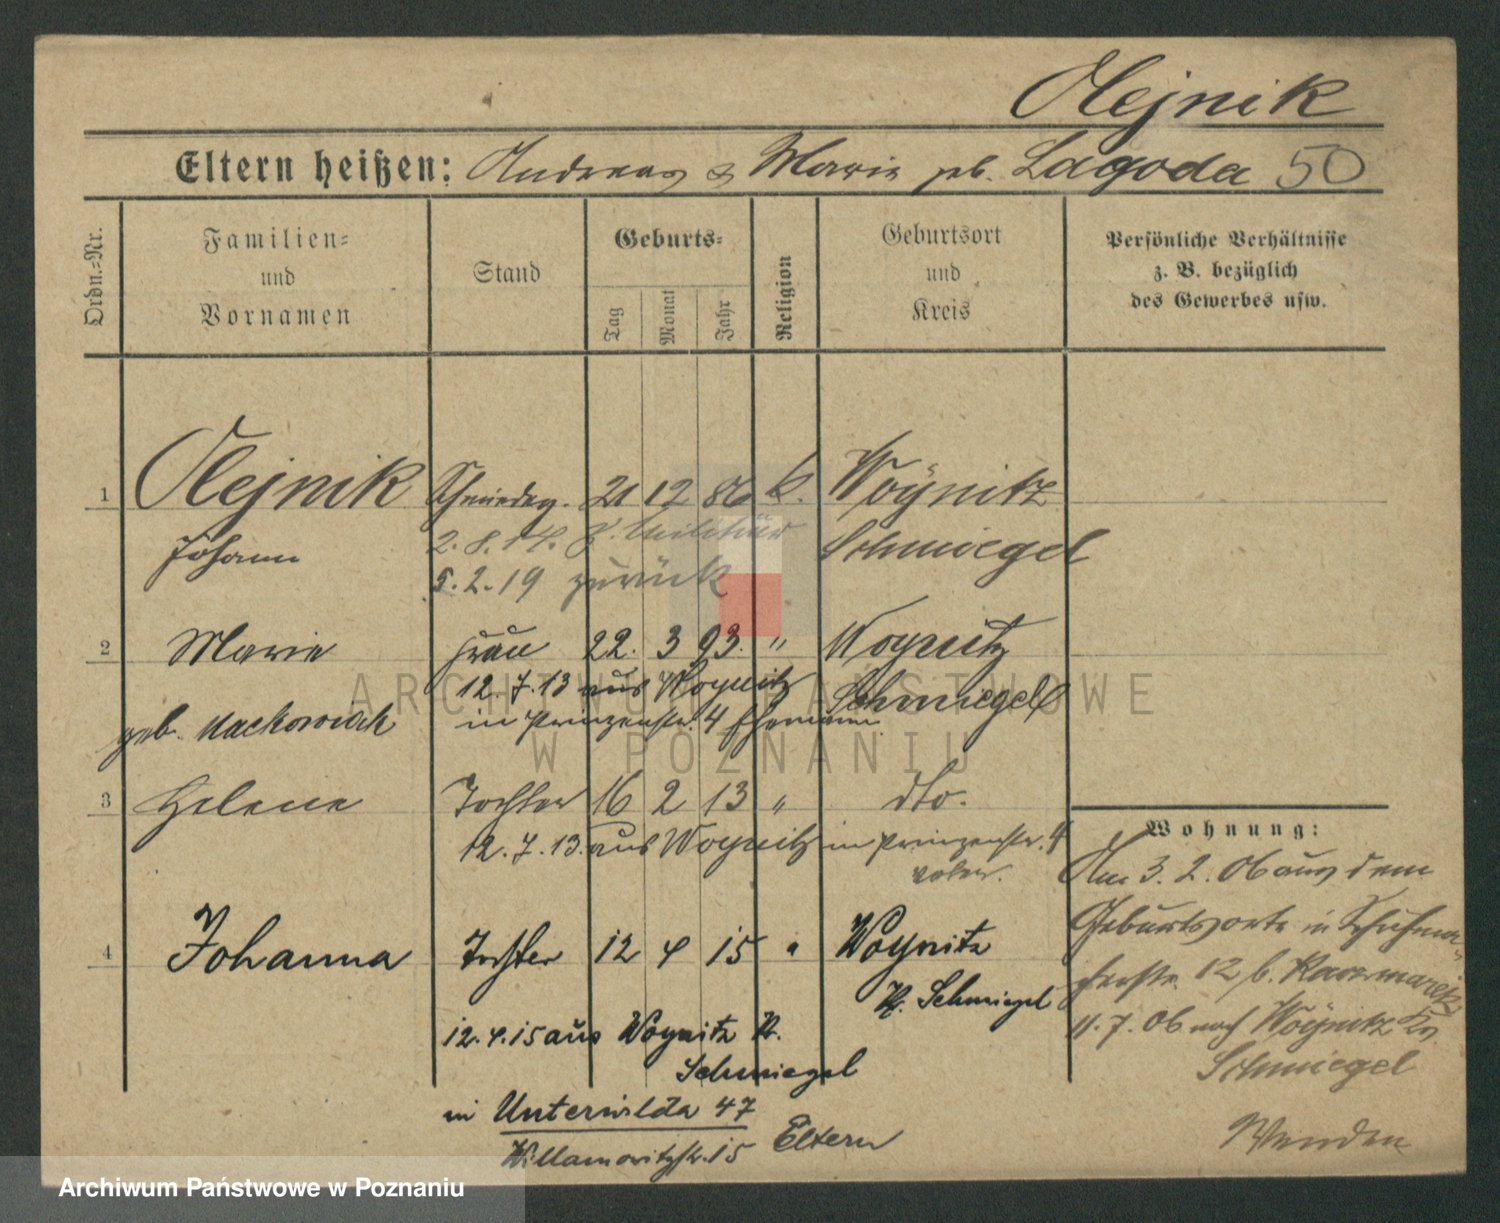 Olejnik
Eltern heißen: Andreas & Marie geb. Lagoda 50
Ordn.-Nr.
Familien- und Vornamen
Stand
Geburts-
Tag Monat Jahr
Religion
Geburtsort und Kreis
Persönliche Verhältnisse
z. B. bezüglich
des Gewerbes usw.
1 Olejnik 21 12 86 k. Woÿnitz
Johann Schmiegel
2.8.14. z. Militär
5.2.19 zurück
2 Marie Frau 22. 3 93. " Woynitz
Schmiegel
12.7.13 aus Woynitz
geb. Mackowiak
in Prinzenstr. 4 Ehemann
3 Helene Tochter 16 2 13 " dto.
12.7.13. aus Woynitz in Prinzenstr. 4
4 Johanna Tochter 12 4 15 " Woynitz
Kr. Schmiegel
12.4.15 aus Woynitz Kr.
Schmiegel
in Unterwilda 47
Willamowitzstr. 15 Eltern
Wohnung:
Am 3.2.06 aus dem
Geburtsorte in
12 b.
11.7.06 nach Woÿnitz Kr.
Schmiegel
Wenden
ARCHIWUM PAŃSTWOWE
W POZNANIU
Archiwum Państwowe w Poznaniu